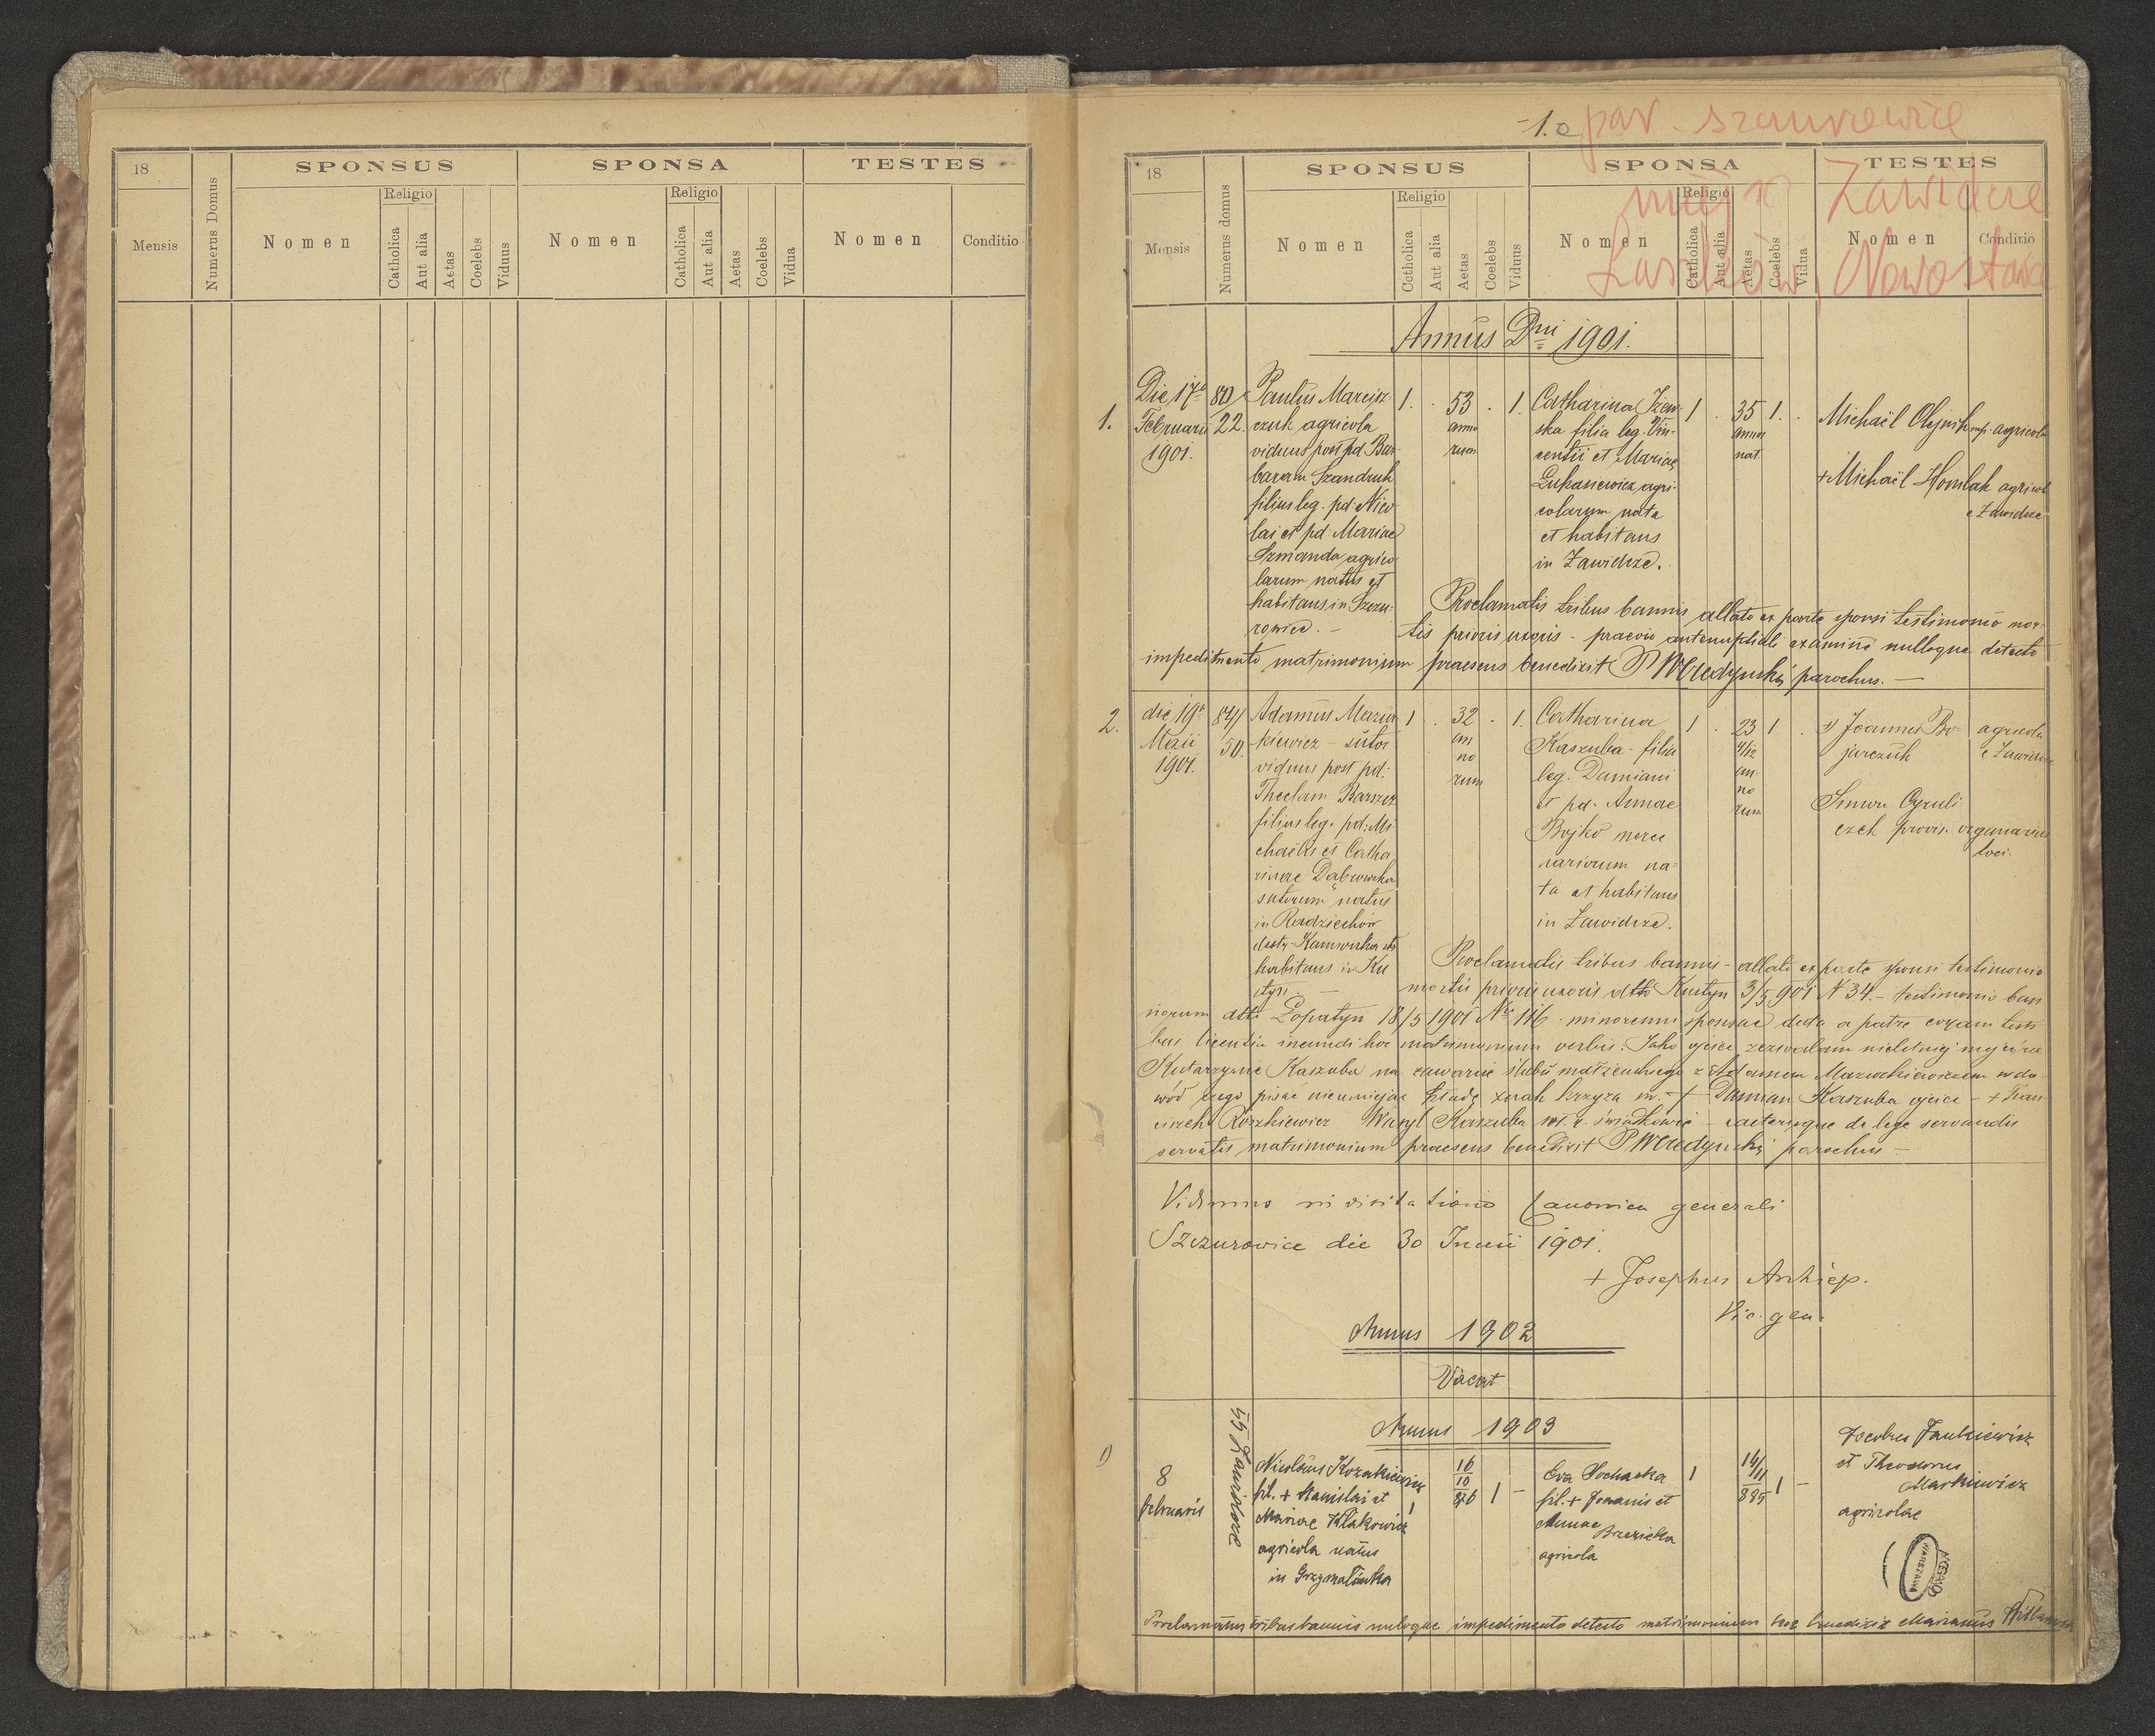 18
SPONSUS
SPONSA
TESTES
Mensis
Numerus Domus
Nomen
Religio
Catholica
Aut alia
Aetas
Coelebs
Viduus
Nomen
Religio
Catholica
Aut alia
Aetas
Coelebs
Vidua
Nomen
Conditio
1.
18
SPONSUS
SPONSA
TESTES
Mensis
Numerus domus
Nomen
Religio
Cctholica
Aut alia
Aetas
Coelebs
Viduus
Nomen
Religio
Catholica
Aut alia
Aetas
Coelebs
Vidua
Nomen
Conditio
Zawidcze
Annus Dni 1901.
1.
Die 17a
Februarii
1901.
80
22.
Paulus Marcisz-
czuk agricola
viduus post pd. Bar-
baram Szandruk
filius leg. pd. Nico-
lai et pd. Mariae
Szmanda agrico
larum natus et
habitans in Szczu-
rowice. -
1. . 53 . 1.
anno
rum
Catharina
ska filia leg. Vin-
centii et Mariae
Łukasiewicz agri-
colarum nata
et habitans
in Zawidcze.
1 . 35 1. .
annor
nat.
Michaël Olejnik mp. agricola
+ Michaël Homlak agricol
e Zawidcze
Proclamatis tribus bannis allato ex parte sponsi testimonio mor-
tis prioris uxoris - praevio antenuptiali examine nulloque detecto
impedimento matrimonium praesens benedixit P WCzedyński parochus. -
2.
die 19a
Maii
1901.
84/
50.
Adamus Mazur
kiewicz - sutor
viduus post pd.
Theclam Barszcz
filius leg. pd. Mi
chaëlis et Catha
rinae Dąbrowska
sutorum natus
in Radziechów
habitans in Ku
styn. -
1 . 32 . 1.
an
no
rum
Catharina
Kaszuba - filia
leg. Damiani
et pd. Annae
Bojko merce
nariorum na-
ta et habitans
in Zawidcze.
1 . 23 1 .
4/12
an-
no
rum
+ Joannes Bo-
jarczuk
agricola
e Zawidcze
Simon Cyruli
czek provis. organarius
loci.
Proclamatis tribus bannis - allato ex parte sponsi testimonio
mortis prioris uxoris dtto Kustyn 3/5 901 N 34. - testimonio ban
norum dtto Łopatyn 18/5 1901 No 116 - minorenni sponsae data a patre coram testi
bus licentia ineundi hoc matrimonium verbis: Jako ojciec zezwalam nieletniej mej córce
Katarzynie Kaszuba na zawarcie ślubu małżeńskiego z Adamem Mazurkiewiczem w do-
wód czego pisać nieumiejąc kładę znak krzyża św. - + Damian Kaszuba ojciec - + Fran
ciszek Roszkiewicz Wasyl Kaszuba świadkowie - caeterisque de lege servandis
servatis matrimonium praesens benedixit P WCzedyński parochus -
Vidimus in visitatione Canonica generali
Szczurowice die 30 Junii 1901.
+ Josephus Archiep.
Vic. gen.
Annus 1902
Vacat
Annus 1903
1)
8
februaris
55 Zawidcze
Nicolaus Kozakiewicz
fil. + Stanislai et
Mariae Klakowicz
agricola natus
in Grzymałówka
1
16
10
876
1 -
Eva Sochacka
fil. + Joannis et
Annae
Brzezicka
agricola
1
14/11
885
1 -
Jacobus Jankiewicz
et Theodorus
Markiewicz
agricolae
WARSZAWA
Proclamatus tribus bannis nuloque impedimento detecto matrimonium hoc benedixit Marianus